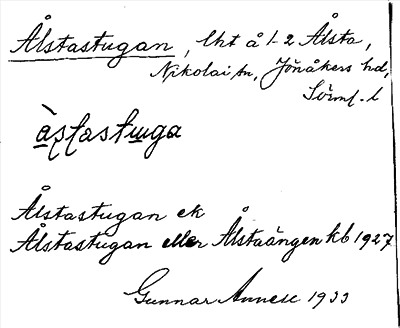 Ålstastugan, lht å 1-2 Ålsta,
Nikolai sn, Jönåkers hd,
Sörml. l
àşt̨astu̲ga
Ålstastugan ek
Ålstastugan eller Ålstaängen kb 1927
Gunnar Annell 1933